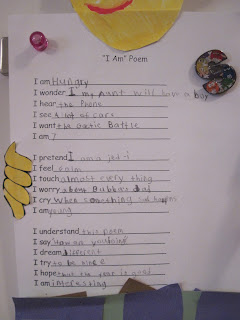 "I Am" Poem
I am Hungry
I wonder I my aunt will have a boy
I hear the Phone
I see a lot of cars
I want the arctic Battle
I am 7
I pretend I am a jedi
I feel calm
I touch almost every thing
I worry about Bubba's dad
I cry when something bad happens
I am young
I understand this poem
I say
I dream different
I try to be nice
I hope that the year is good
I am interesting